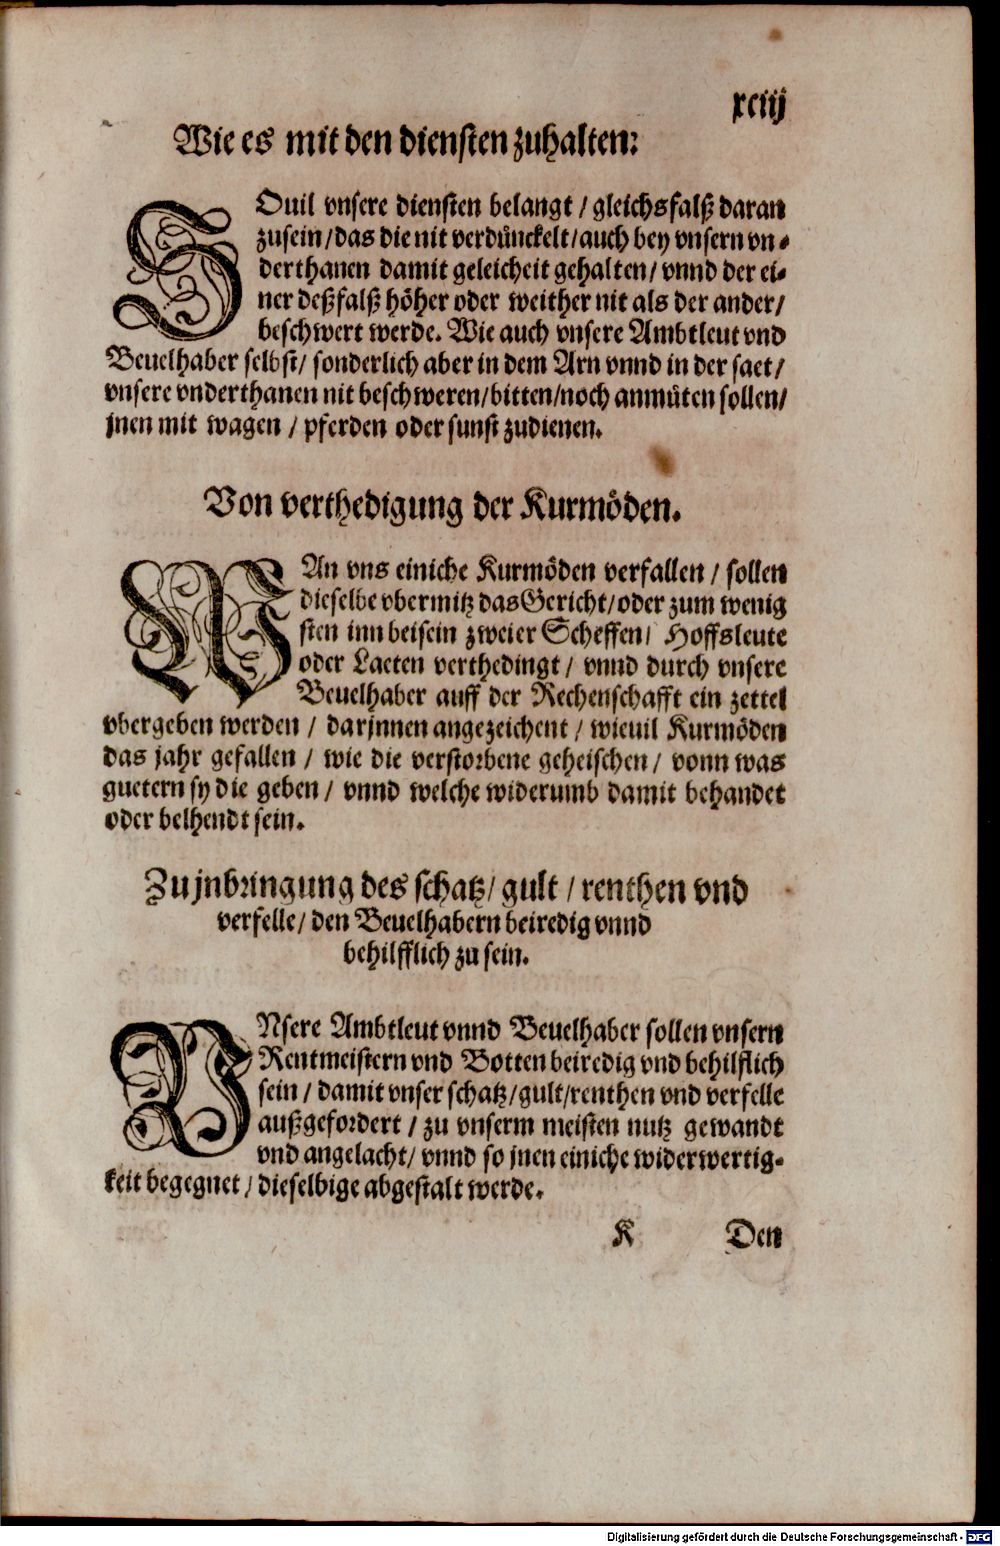 xciij
Wie es mit den diensten zuhalten:
SOuil vnsere diensten belangt / gleichsfalß daran
zusein / das die nit verdünckelt / auch bey vnsern vn-
derthanen damit geleicheit gehalten / vnnd der ei-
ner deßfalß höher oder weither nit als der ander /
beschwert werde. Wie auch vnsere Ambtleut vnd
Beuelhaber selbst / sonderlich aber in dem Arn vnnd in der saet /
vnsere vnderthanen nit beschweren / bitten / noch anmüten sollen /
jnen mit wagen / pferden oder sunst zudienen.
Von verthedigung der Kurmöden.
WAn vns einiche Kurmöden verfallen / sollen
dieselbe vbermitz das Gericht / oder zum wenig
sten inn beisein zweier Scheffen / Hoffsleute
oder Laeten verthedingt / vnnd durch vnsere
Beuelhaber auff der Rechenschafft ein zettel
vbergeben werden / darjnnen angezeichent / wieuil Kurmöden
das jahr gefallen / wie die verstorbene geheischen / vonn was
guetern sy die geben / vnnd welche widerumb damit behandet
oder belhendt sein.
Zu jnbringung des schatz / gult / renthen vnd
verfelle / den Beuelhabern beiredig vnnd
behilfflich zu sein.
VNsere Ambtleut vnnd Beuelhaber sollen vnsern
Rentmeistern vnd Botten beiredig vnd behilflich
sein / damit vnser schatz / gult / renthen vnd verfelle
außgefordert / zu vnserm meisten nutz gewandt
vnd angelacht / vnnd so jnen einiche widerwertig-
keit begegnet / dieselbige abgestalt werde.
K Den
Digitalisierung gefördert durch die Deutsche Forschungsgemeinschaft - DFG